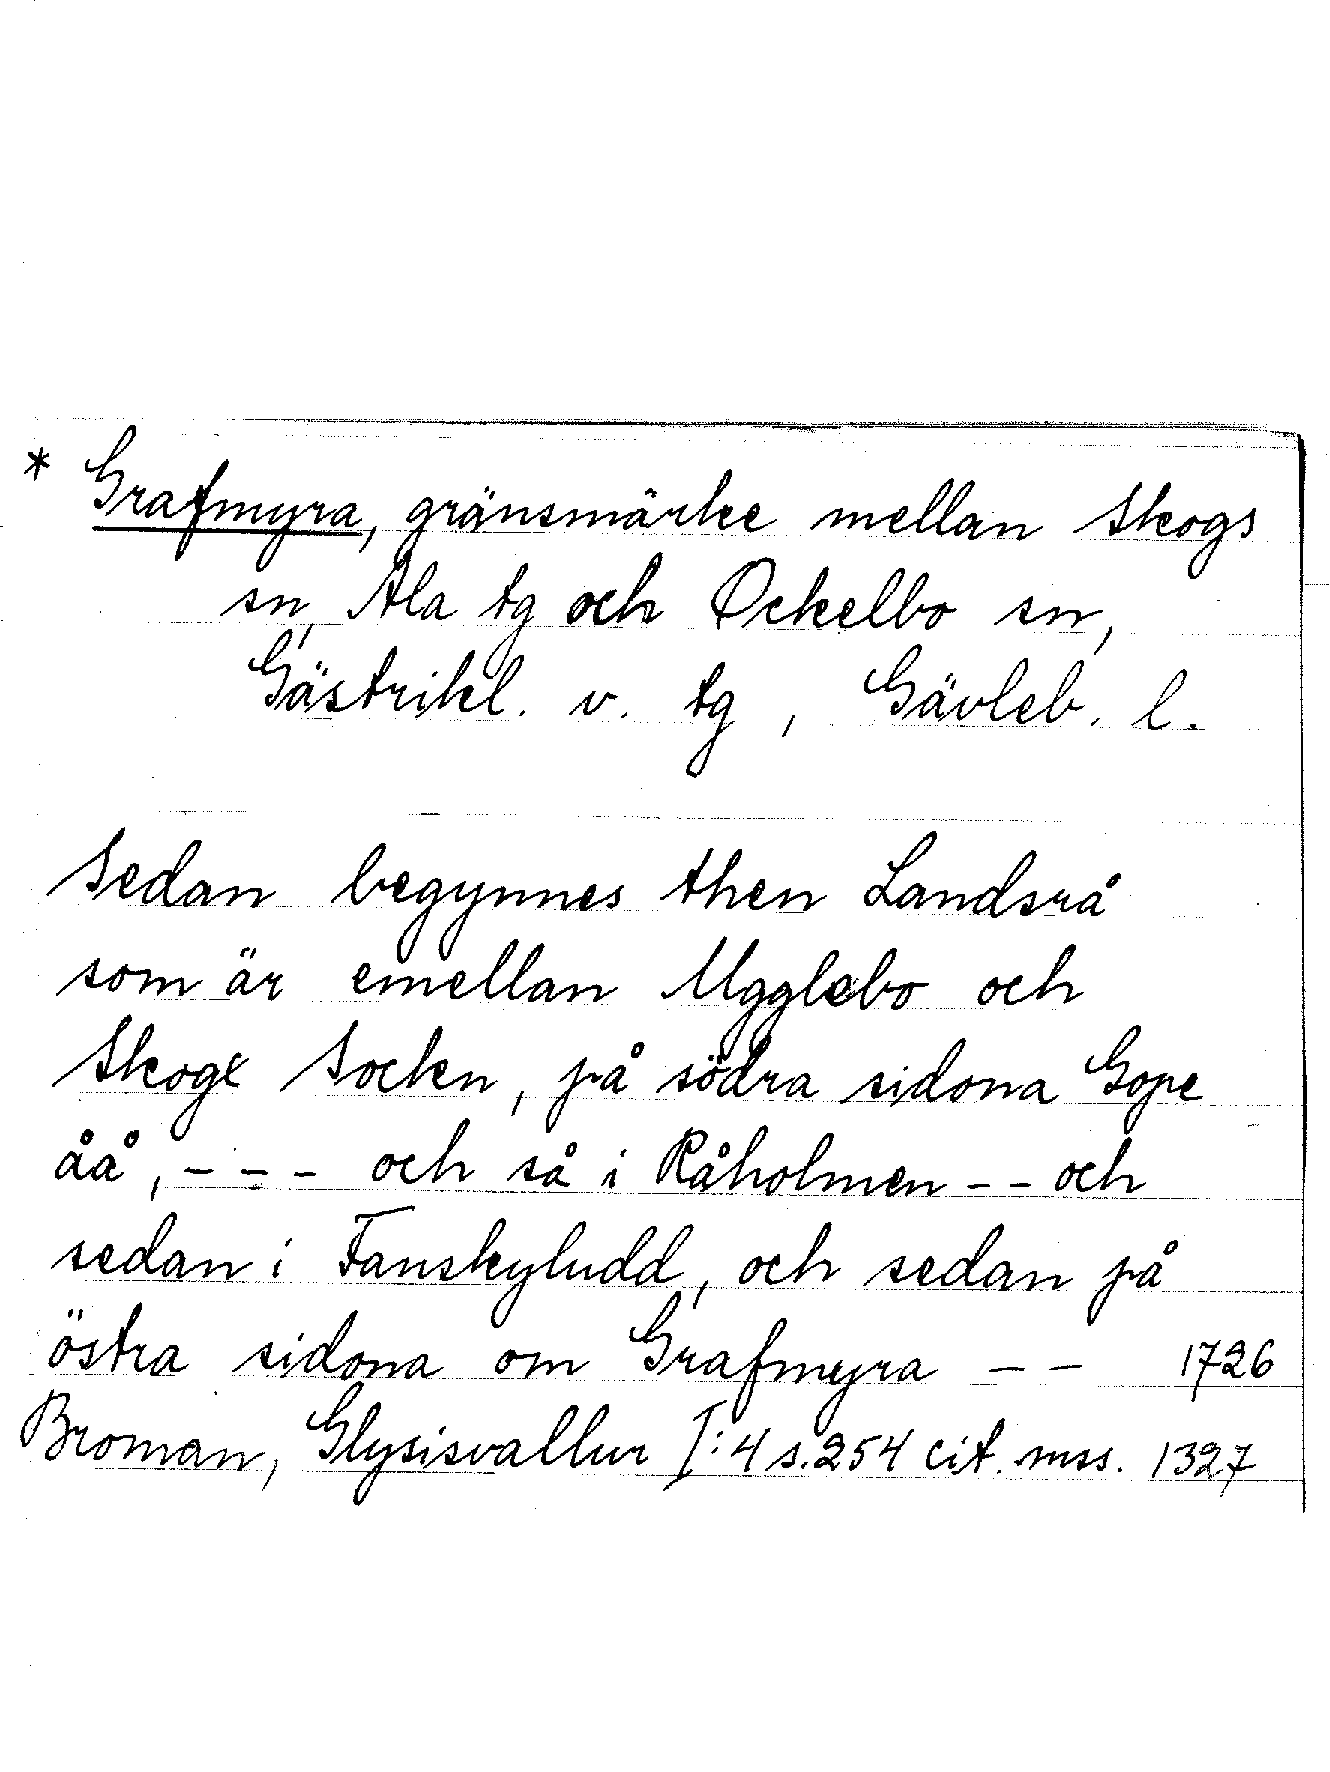 * Grafmyra, gränsmärke mellan Skogs
sn, Ala tg och Ockelbo sn,
Gästrikl. v. tg, Gävleb. l.
Sedan begynnes then Landsrå
som är emellan Ugglebo och
Skogx Socken, på södra sidona Gope
åå, - - - och så i Råholmen - - och
sedan i Fanskyludd, och sedan på
östra sidona om Grafmyra - - 1726
Broman, Glysisvallur I:4 s.254 cit. mss. 1327